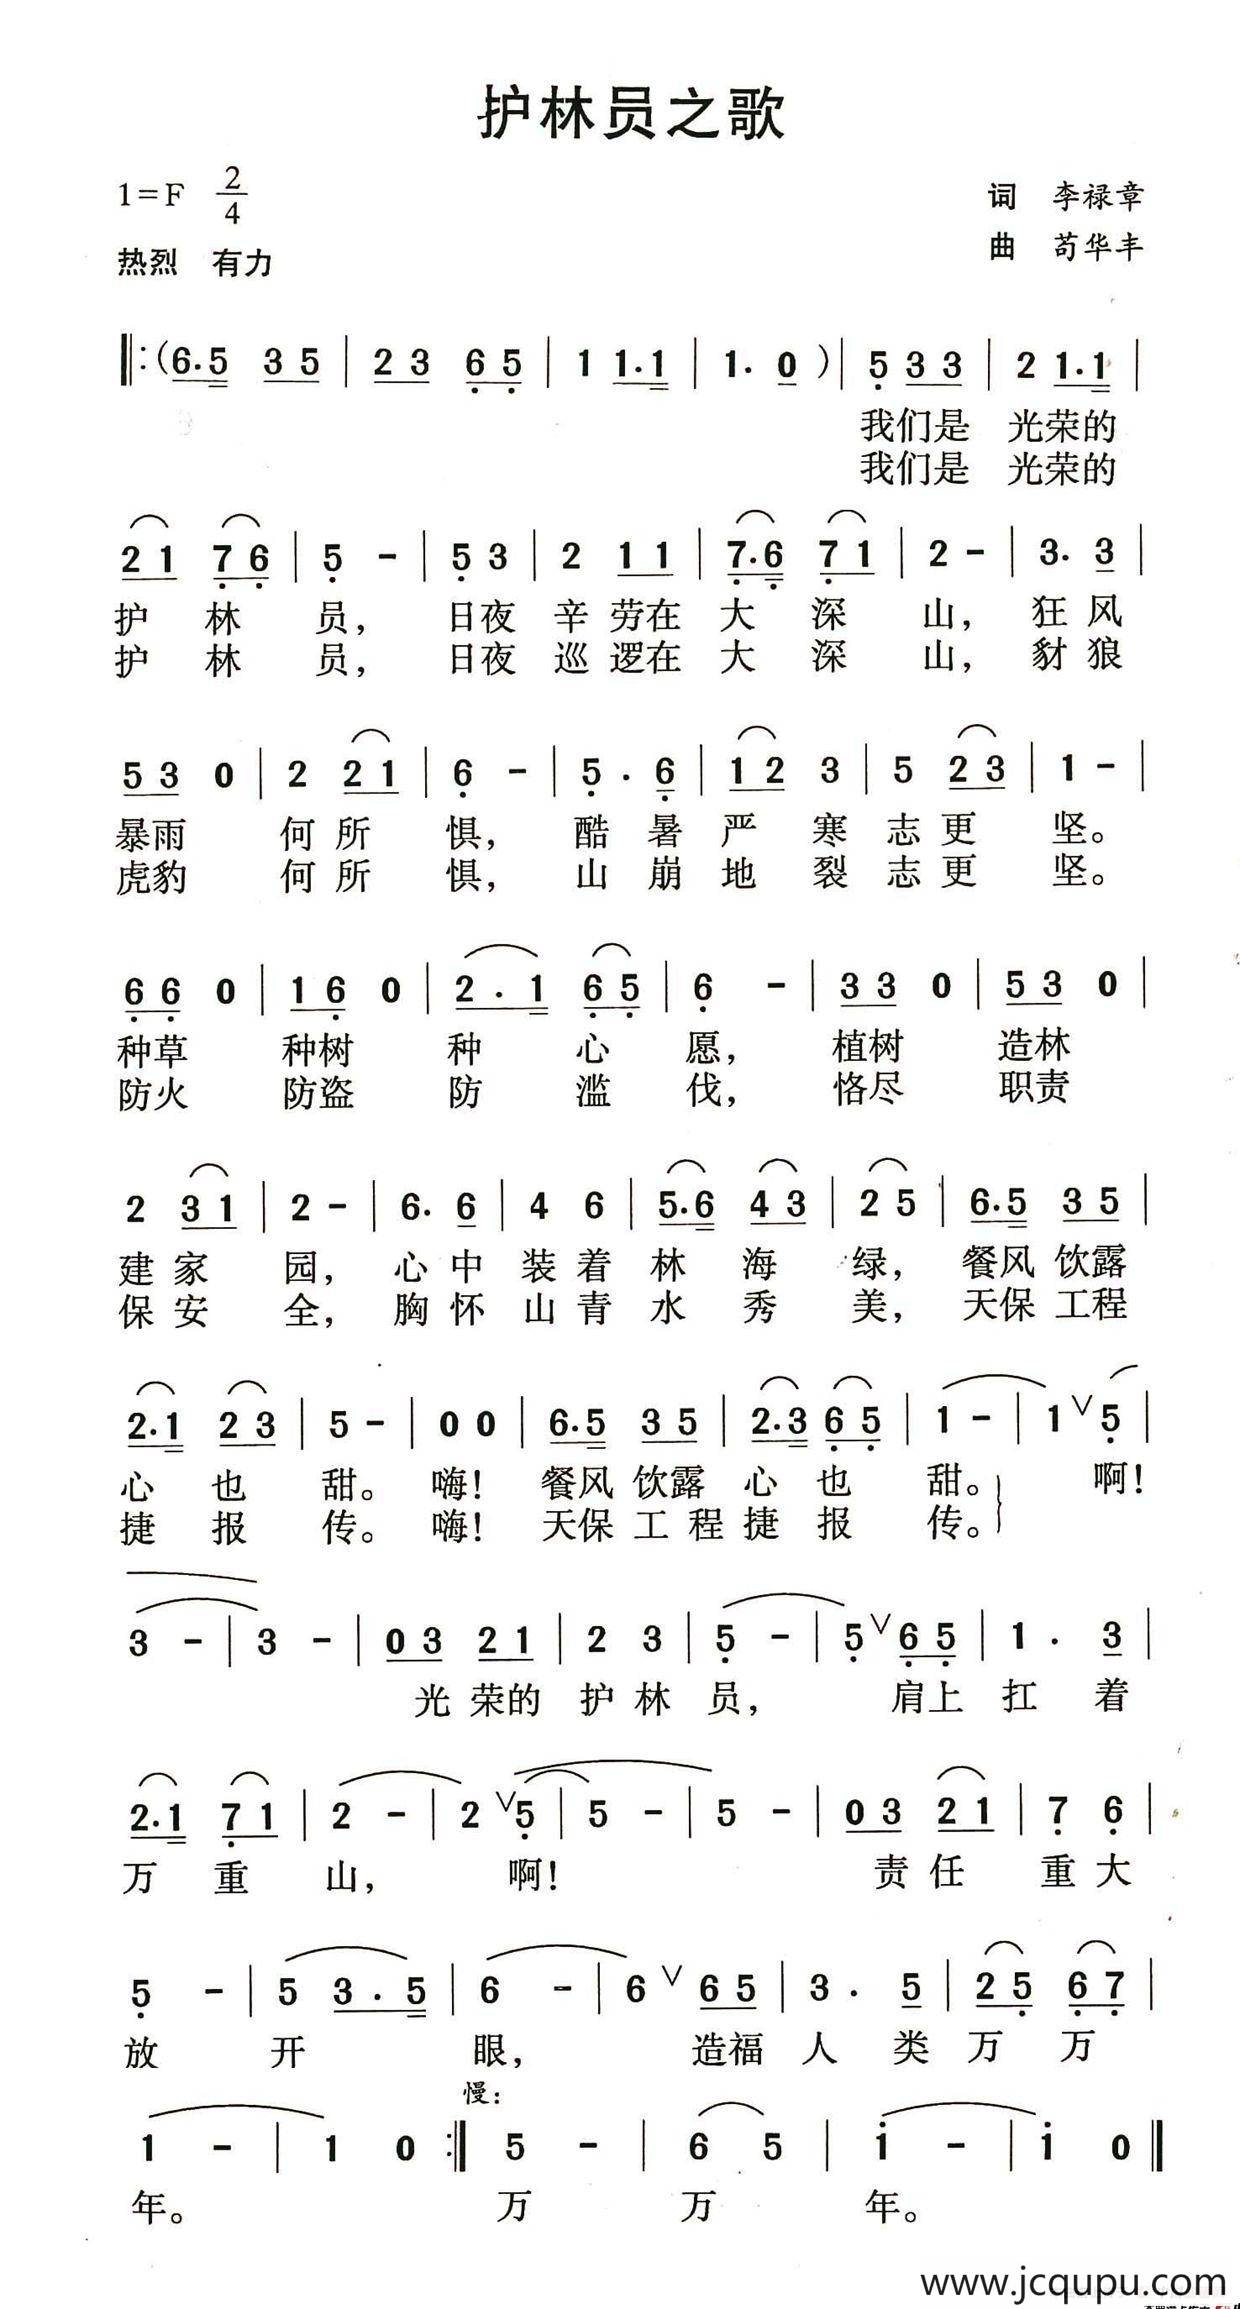 护林员之歌
1=F 2/4
词 李禄章
热烈 有力
曲 苟华丰
‖:(6.5 3 5 | 2 3 6 5 | 1 1.1 | 1. 0 )| 5 3 3 | 2 1.1 |
我们是 光荣的
我们是 光荣的
2 1 7 6 | 5 - | 5 3 | 2 1 1 | 7.6 7 1 | 2 - | 3. 3 |
护 林 员, 日夜 辛 劳在 大 深 山, 狂 风
护 林 员, 日夜 巡 逻在 大 深 山, 豺 狼
5 3 0 | 2 2 1 | 6 - | 5 . 6 | 1 2 3 | 5 2 3 | 1 - |
暴雨 何 所 惧, 酷 暑 严 寒 志 更 坚。
虎豹 何 所 惧, 山 崩 地 裂 志 更 坚。
6 6 0 | 1 6 0 | 2 . 1 6 5 | 6 - | 3 3 0 | 5 3 0 |
种草 种树 种 心 愿, 植树 造林
防火 防盗 防 滥 伐, 恪尽 职责
2 3 1 | 2 - | 6. 6 | 4 6 | 5.6 4 3 | 2 5 | 6.5 3 5 |
建 家 园, 心 中 装 着 林 海 绿, 餐风 饮露
保 安 全, 胸 怀 山 青 水 秀 美, 天保 工程
2.1 2 3 | 5 - | 0 0 | 6.5 3 5 | 2.3 6 5 | 1 - | 1 ∨ 5 |
心 也 甜。 嗨! 餐风 饮露 心 也 甜。 啊!
捷 报 传。 嗨! 天保 工 程 捷 报 传。
3 - | 3 - | 0 3 2 1 | 2 3 | 5 - | 5 ∨ 6 5 | 1 . 3 |
光 荣的 护 林 员, 肩上 扛 着
2.1 7 1 | 2 - | 2 ∨ 5 | 5 - | 5 - | 0 3 2 1 | 7 6 |
万 重 山, 啊! 责 任 重 大
5 - | 5 3 . 5 | 6 - | 6 ∨ 6 5 | 3 . 5 | 2 5 6 7 |
放 开 眼, 造福 人 类 万 万
慢:
1 - | 1 0 :‖ 5 - | 6 5 | 1 - | 1 0 ‖
年。 万 万 年。
www.jcqupu.com